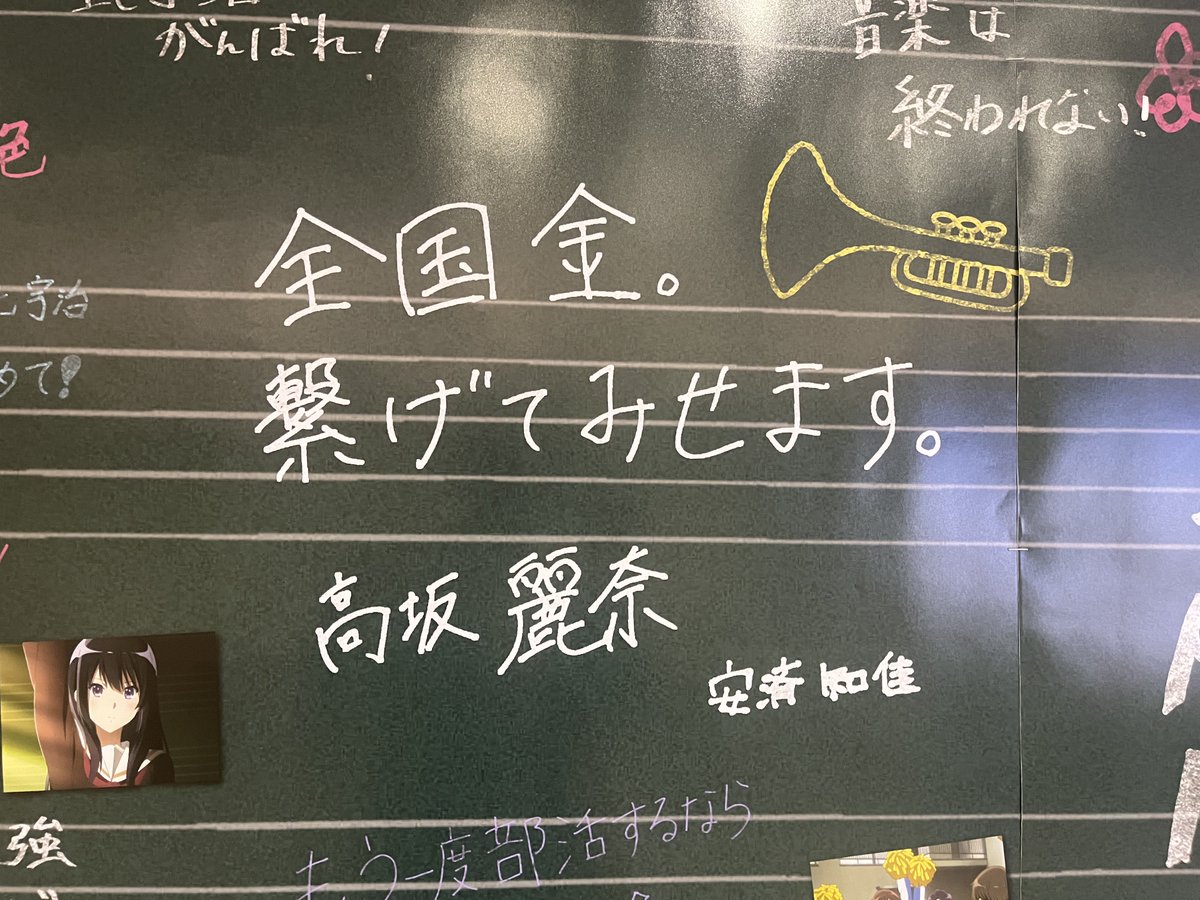 がんばれ!
音楽は
終われない!
色
全国金。
宇治
めて!
繋げてみせます。
高坂 麗奈
安済 知佳
強
もう一度部活するなら